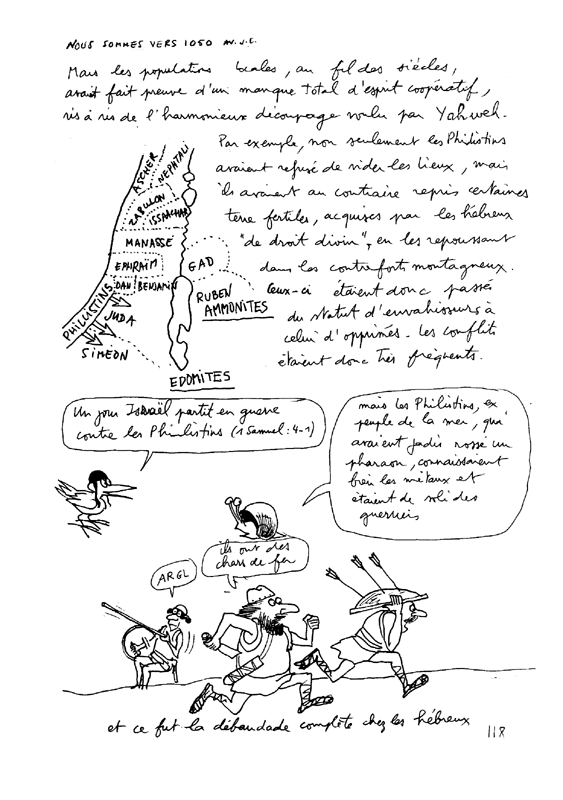 NOUS SOMMES VERS 1050 AV. J.C.
Mais les populations locales, au fil des siècles,
avait fait preuve d'un manque total d'esprit coopératif,
vis à vis de l'harmonieux découpage voulu par Yahweh.
Par exemple, non seulement les Philistins
avaient refusé de vider les lieux, mais
ils avaient au contraire repris certaines
terre fertiles, acquises par les hébreux
"de droit divin", en les repoussant
dans les contreforts montagneux.
Ceux-ci étaient donc passé
du statut d'envahisseurs à
celui d'opprimés. Les conflits
étaient donc très fréquents.
ASCHER
NEPHTALI
ZABULON
ISSACHAR
MANASSÉ
EPHRAÏM
GAD
DAN
BENJAMIN
RUBEN
AMMONITES
PHILISTINS
JUDA
SIMEON
EDOMITES
Un jour Israël partit en guerre
contre les Philistins (1 Samuel: 4-1)
mais les Philistins, ex
peuple de la mer, qui
avaient jadis rossé un
pharaon, connaissaient
bien les métaux et
étaient de solides
guerriers
ils ont des
chars de fer
ARGL
et ce fut la débandade complète chez les hébreux
118